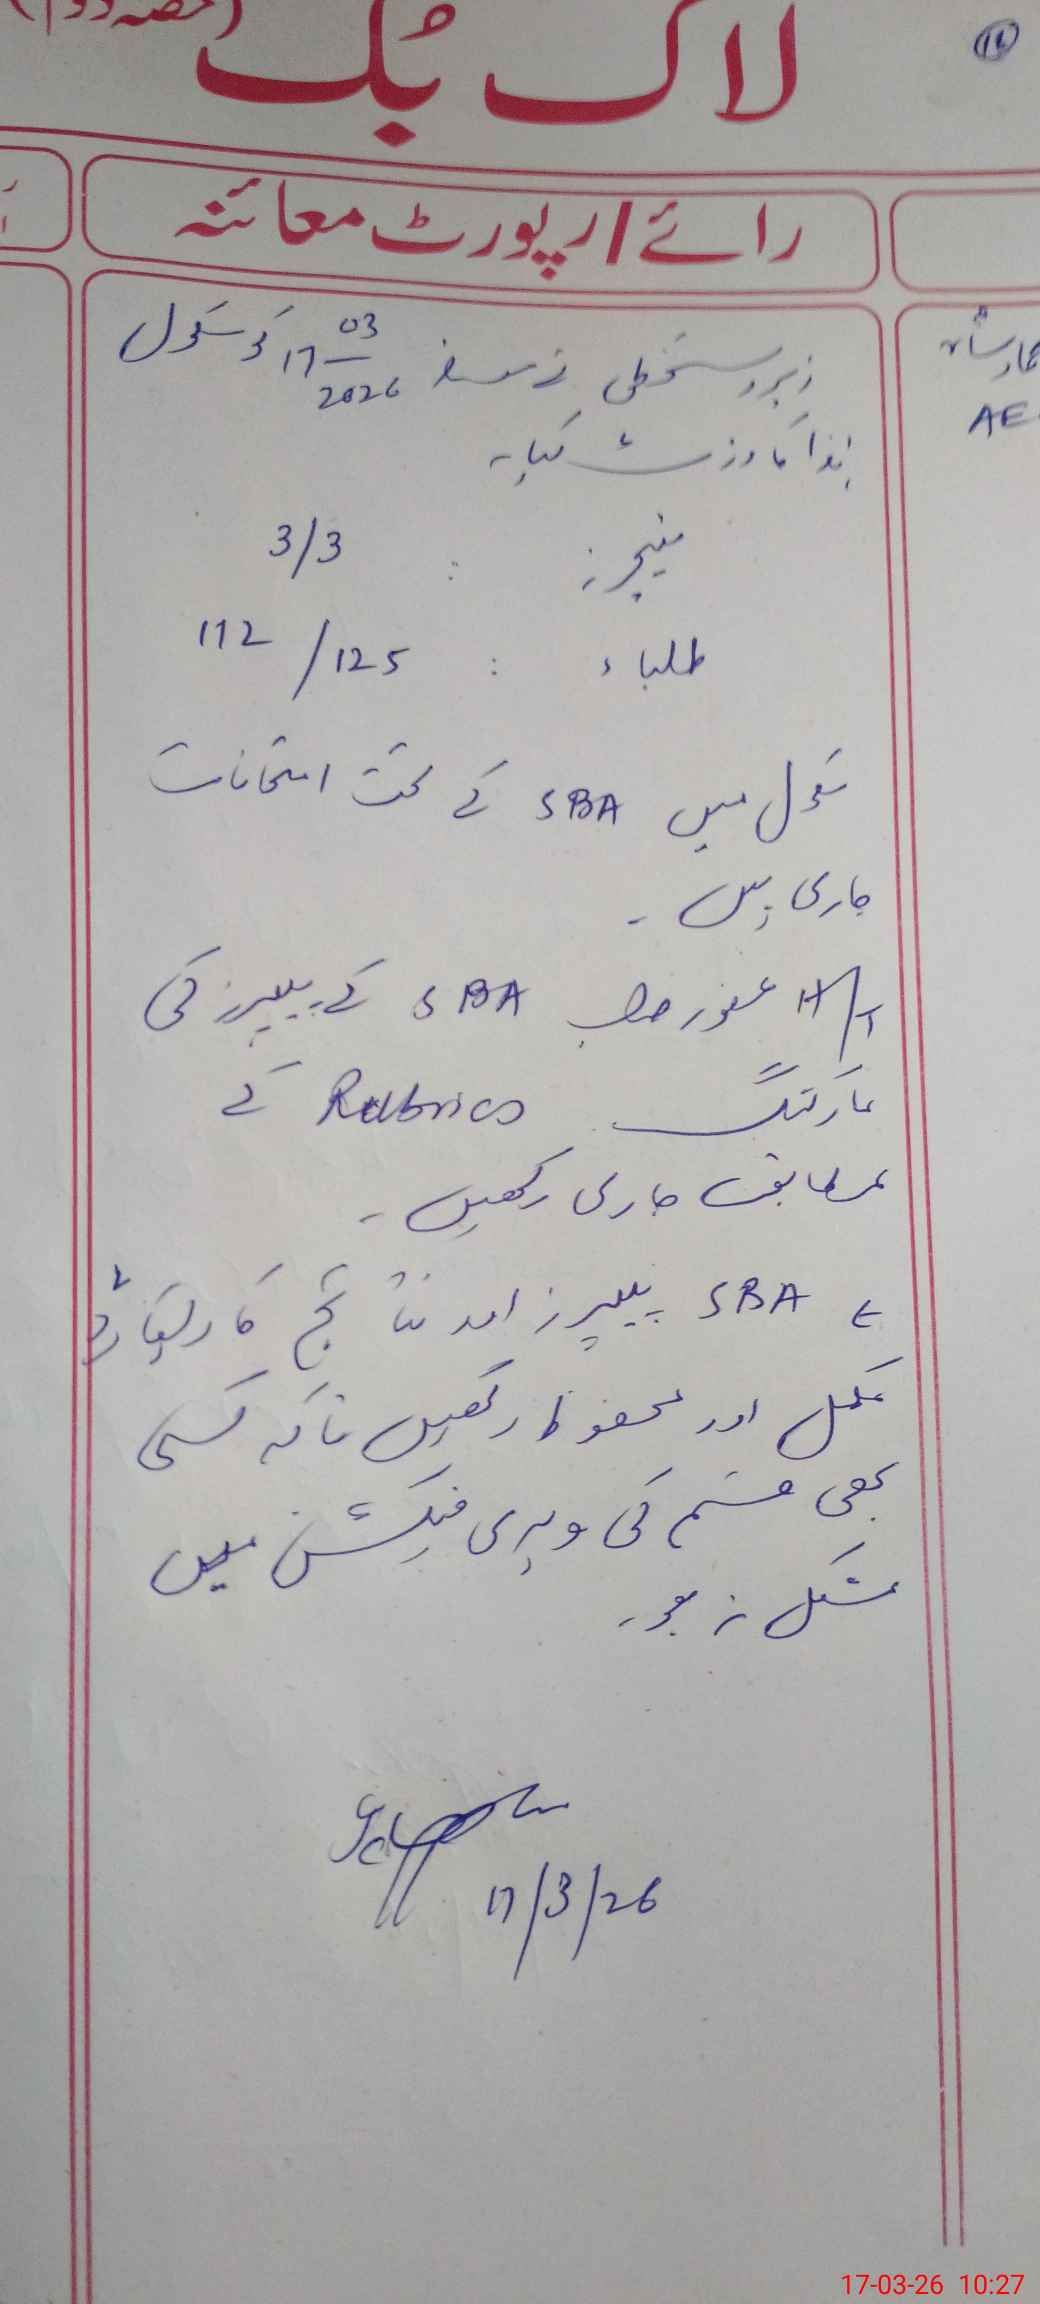 (حصہ دوم)
لاگ بُک
رائے/رپورٹ معائنہ
زیر دستخطی نے مورخہ 17-03-2026 کو سکول
ہذا کا وزٹ کیا۔
ٹیچرز : 3/3
طلباء : 112/125
سکول میں SBA کے تحت امتحانات
جاری ہیں۔
H/T صاحب SBA کے پیپرز کی
مارکنگ Rubrics کے
مطابق جاری رکھیں۔
SBA پیپرز اور نتائج کا ریکارڈ
مکمل اور محفوظ رکھیں تاکہ کسی
بھی قسم کی ویری فیکیشن میں
مشکل نہ ہو۔
17/3/26
AE
17-03-26 10:27